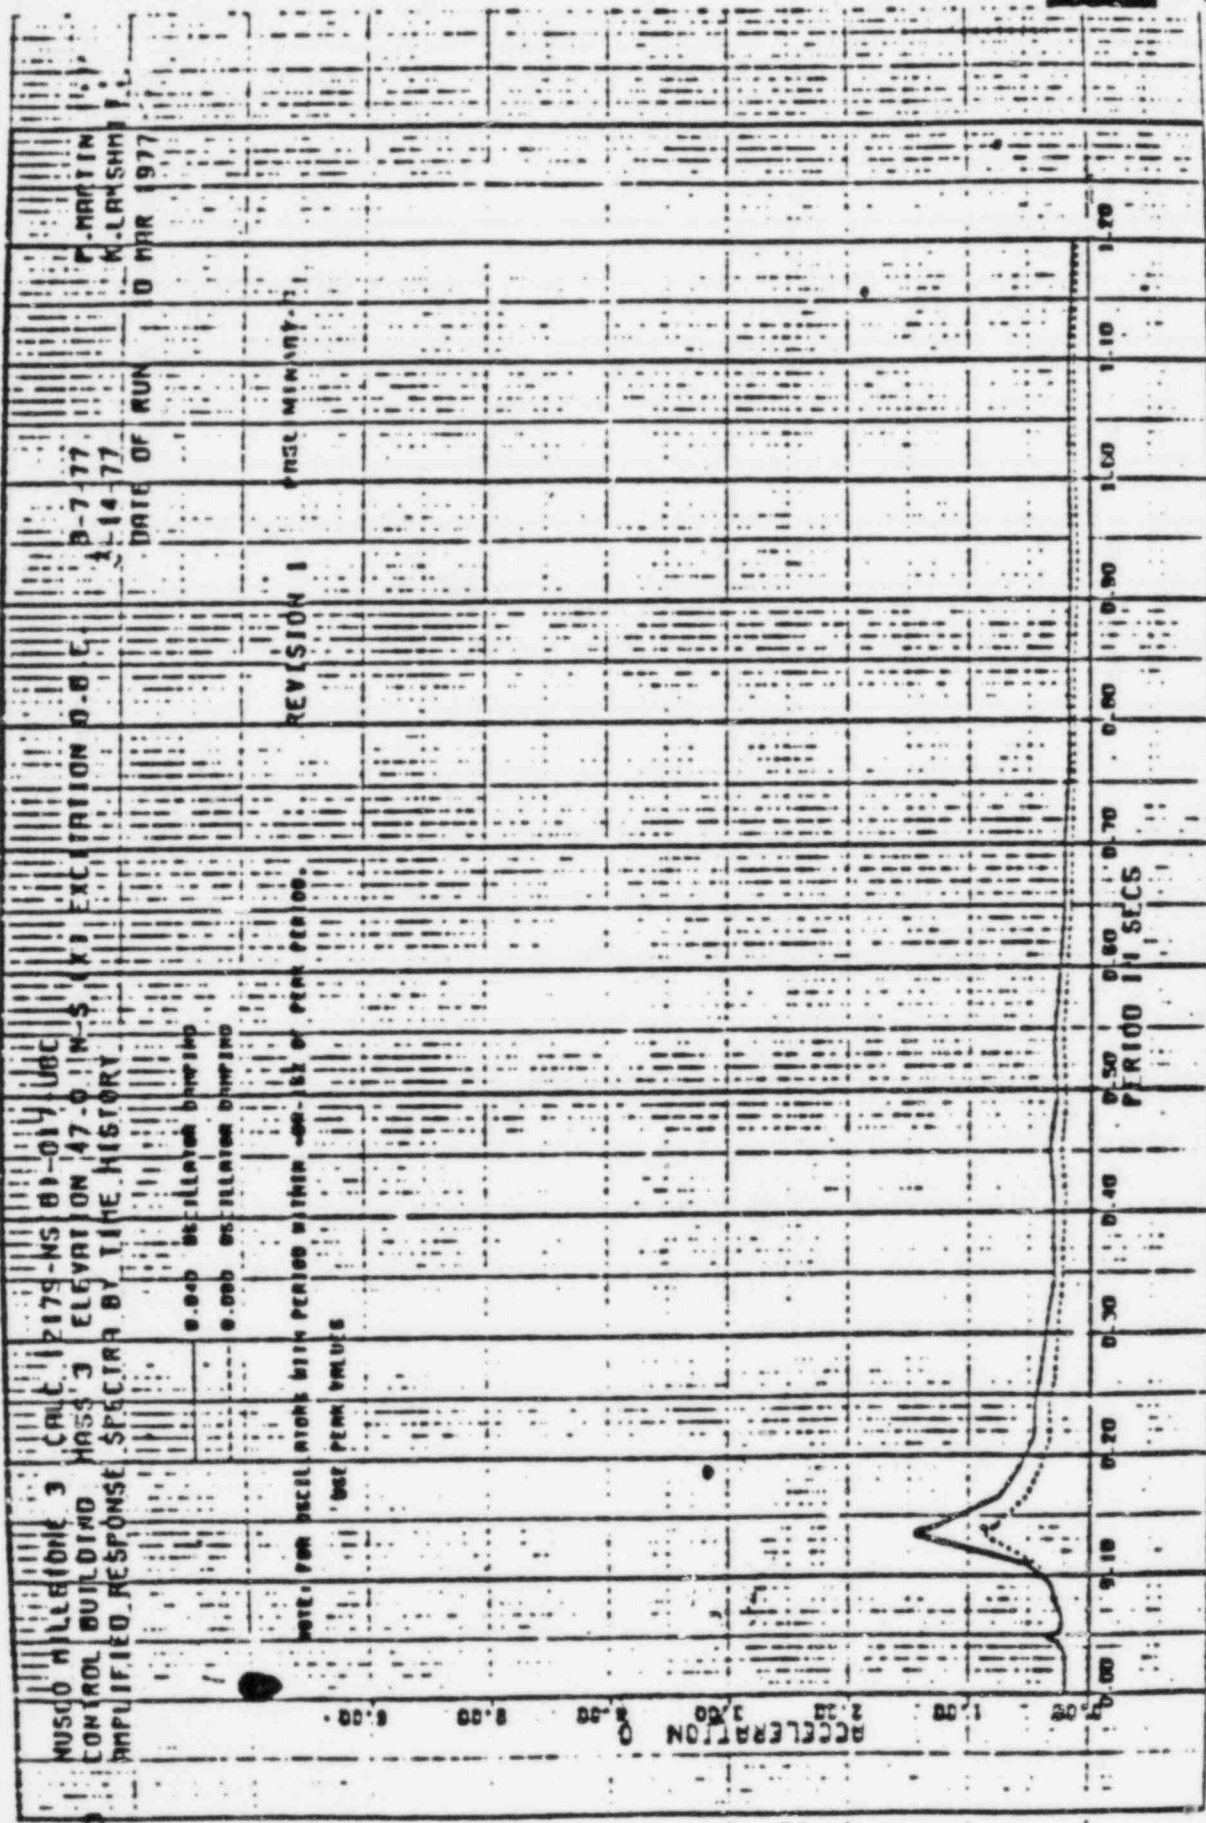 NUSCO MILLSTONE 3 CALC 12179-NS B)-017-UBC 3-7-77 P.MARTIN
CONTROL BUILDING MASS 3 ELEVATION 47.0 N-S (X) EXCITATION 0.B.E. 14-77 K.LAKSHMI
AMPLIFIED RESPONSE SPECTRA BY TIME HISTORY DATE OF RUN 10 MAR 1977
0.040 OSCILLATOR DAMPING
OSCILLATOR DAMPING
REVISION 1
NOTE: FOR OSCILLATORS WITH PERIOD WITHIN OF PEAK PERIOD,
USE PEAK VALUES
ACCELERATION G
0.00 1.00 2.00 3.00
0.00 0.10 0.20 0.30 0.40 0.50 0.60 0.70 0.80 0.90 1.00 1.10 1.20
PERIOD IN SECS